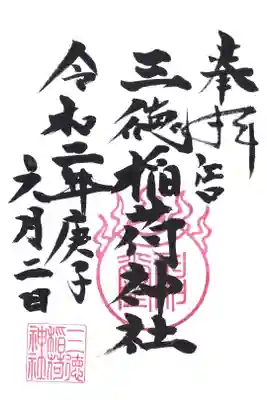 奉拝
三徳稲荷神社
令和二年庚子
六月二日
三徳
稲荷
神社